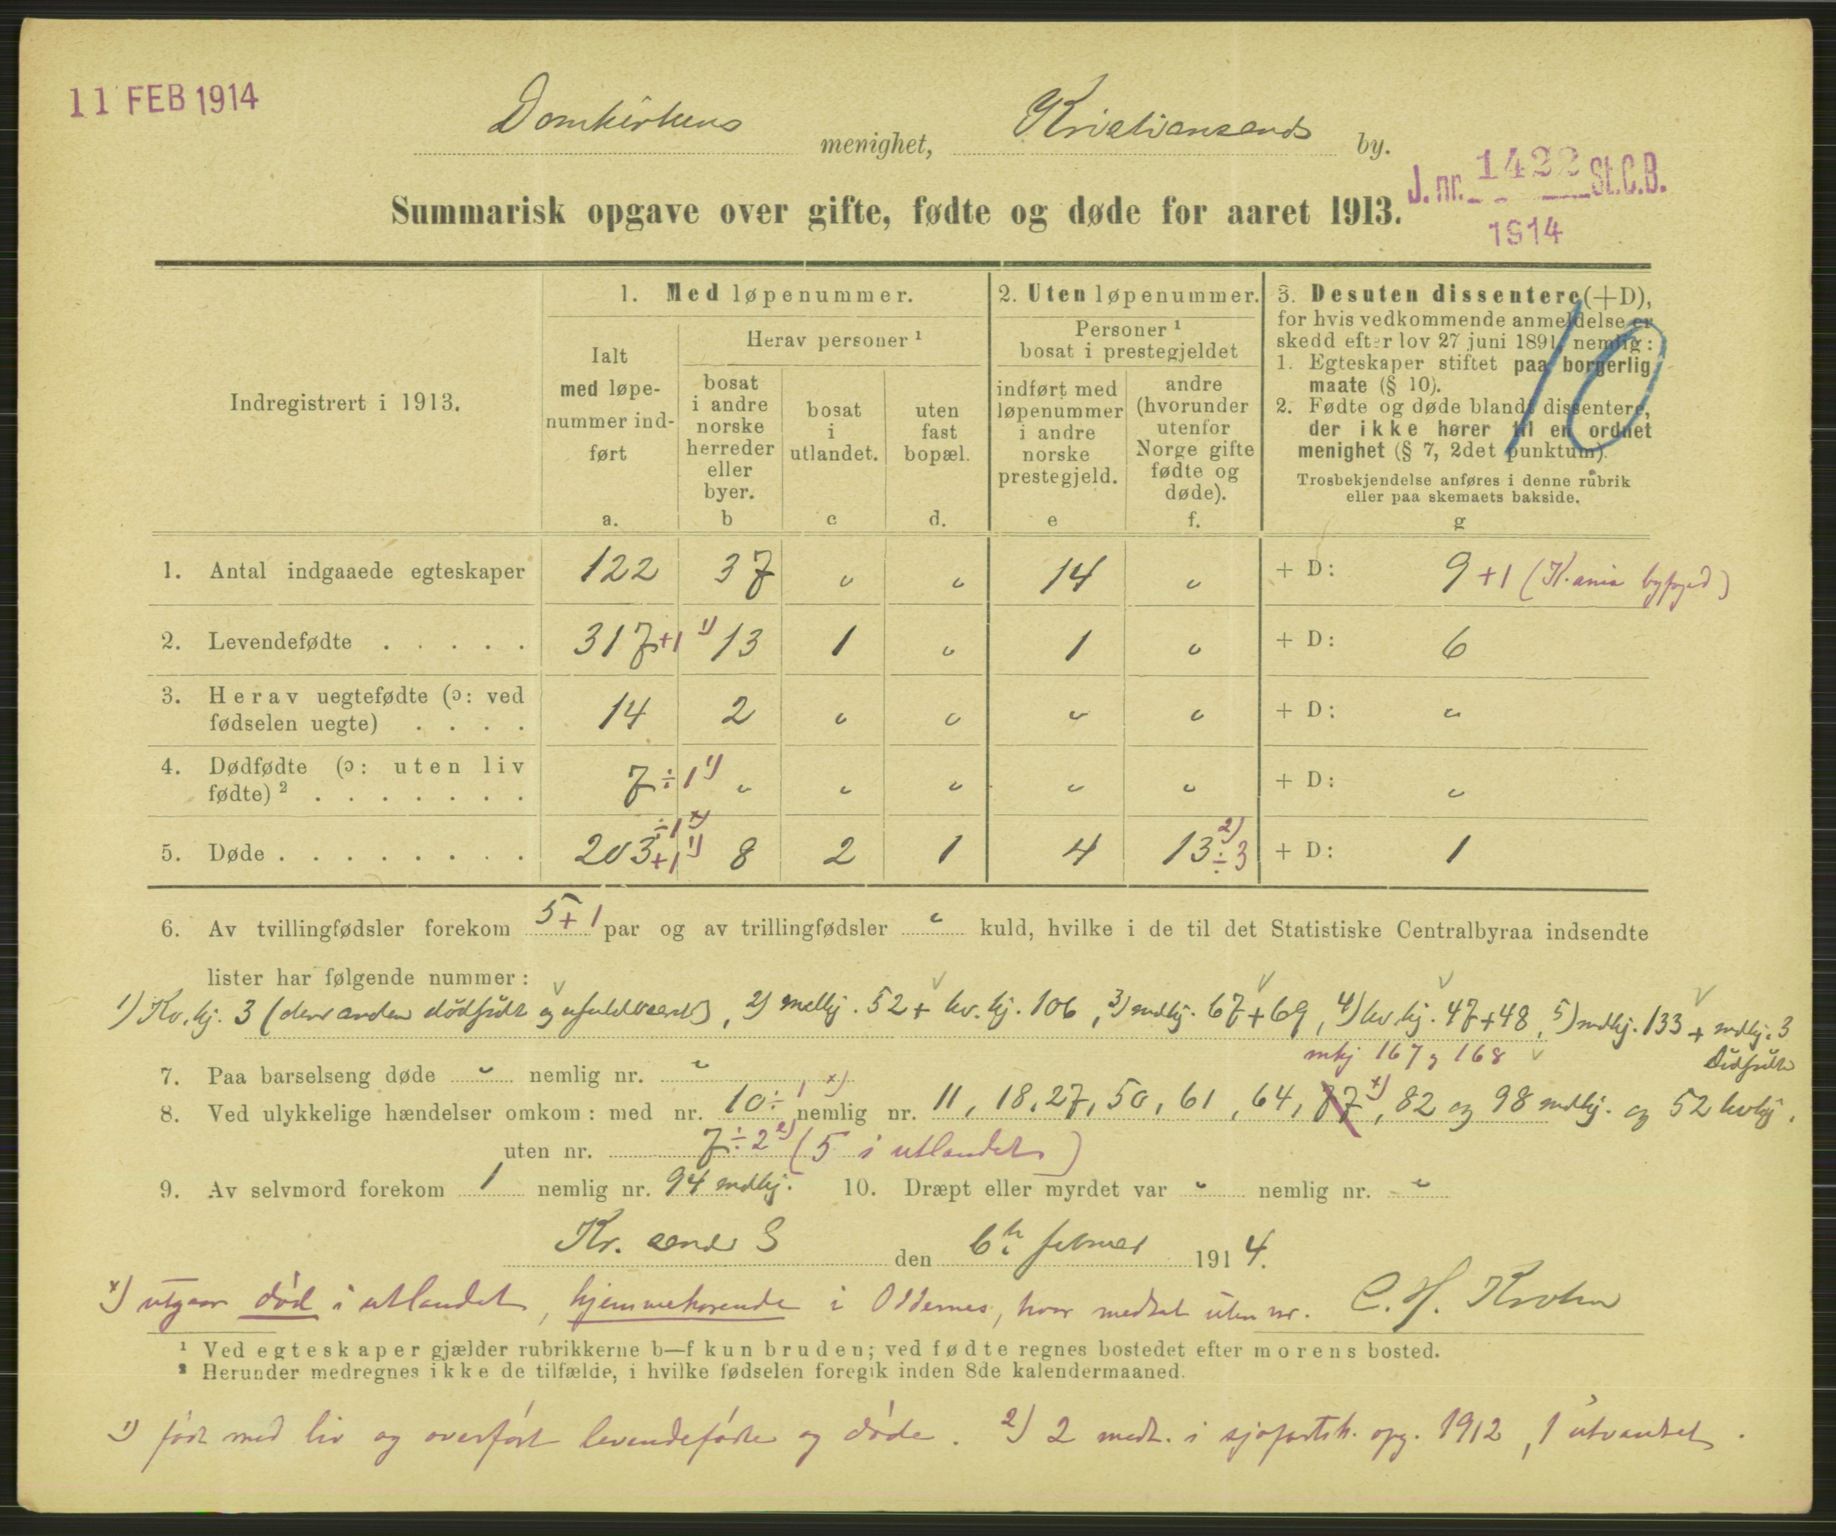 11 FEB 1914
Domkirkens menighet, Kristianssands by.
J. nr. 1422 St.C.B.
1914
Summarisk opgave over gifte, fødte og døde for aaret 1913.
10
Indregistrert i 1913.
1. Med løpenummer.
Ialt
med løpe-
nummer ind-
ført
a.
Herav personer ¹
bosat
i andre
norske
herreder
eller
byer.
b
bosat
i
utlandet.
c
uten
fast
bopæl.
d.
2. Uten løpenummer.
Personer ¹
bosat i prestegjeldet
indført med
løpenummer
i andre
norske
prestegjeld.
e
andre
(hvorunder
utenfor
Norge gifte
fødte og
døde).
f.
3. Desuten dissentere (+D),
for hvis vedkommende anmeldelse er
skedd efter lov 27 juni 1891, nemlig:
1. Egteskaper stiftet paa borgerlig
maate (§ 10).
2. Fødte og døde blandt dissentere,
der ikke hører til en ordnet
menighet (§ 7, 2det punktum).
Trosbekjendelse anføres i denne rubrik
eller paa skemaets bakside.
g
1. Antal indgaaede egteskaper 122 37 " " 14 " + D: 9 +1 (K.ania byfoged)
2. Levendefødte . . . . . 317+1 ¹) 13 1 " 1 " + D: 6
3. Herav uegtefødte (ɔ: ved
fødselen uegte) . . . . 14 2 " " " " + D: "
4. Dødfødte (ɔ: uten liv
fødte) ² . . . . . . . 7÷1 ¹) " " " " " + D: "
5. Døde . . . . . . . . 203 ÷1 ˣ) +1 ¹) 8 2 1 4 13 ²) ÷3 + D: 1
6. Av tvillingfødsler forekom 5+1 par og av trillingfødsler " kuld, hvilke i de til det Statistiske Centralbyraa indsendte
lister har følgende nummer:
1) Kv.kj. 3 (den anden dödfödt og ufuldbaaret), 2) mdkj. 52 + kv.kj. 106, 3) mdkj. 67+69, 4) kv kj. 47+48, 5) mdkj. 133 + mdkj. 3
dödfödte
mkj 167 og 168
7. Paa barselseng døde " nemlig nr. "
8. Ved ulykkelige hændelser omkom: med nr. 10÷1 ˣ) nemlig nr. 11, 18, 27, 50, 61, 64, 87 ˣ), 82 og 98 mdkj. og 52 kvkj.
uten nr. 7÷2 ²) (5 i utlandet)
9. Av selvmord forekom 1 nemlig nr. 94 mdkj. 10. Dræpt eller myrdet var " nemlig nr. "
Kr.sand S den 6te februar 1914.
ˣ) utgaar død i utlandet, hjemmehørende i Oddernes, hvor medtat uten nr. C. H. Krohn
¹ Ved egteskaper gjælder rubrikkerne b—f kun bruden; ved fødte regnes bostedet efter morens bosted.
² Herunder medregnes ikke de tilfælde, i hvilke fødselen foregik inden 8de kalendermaaned.
¹) født med liv og overført levendefødte og døde. ²) 2 medt. i sjøfartsk. opg. 1912, 1 utvandret.